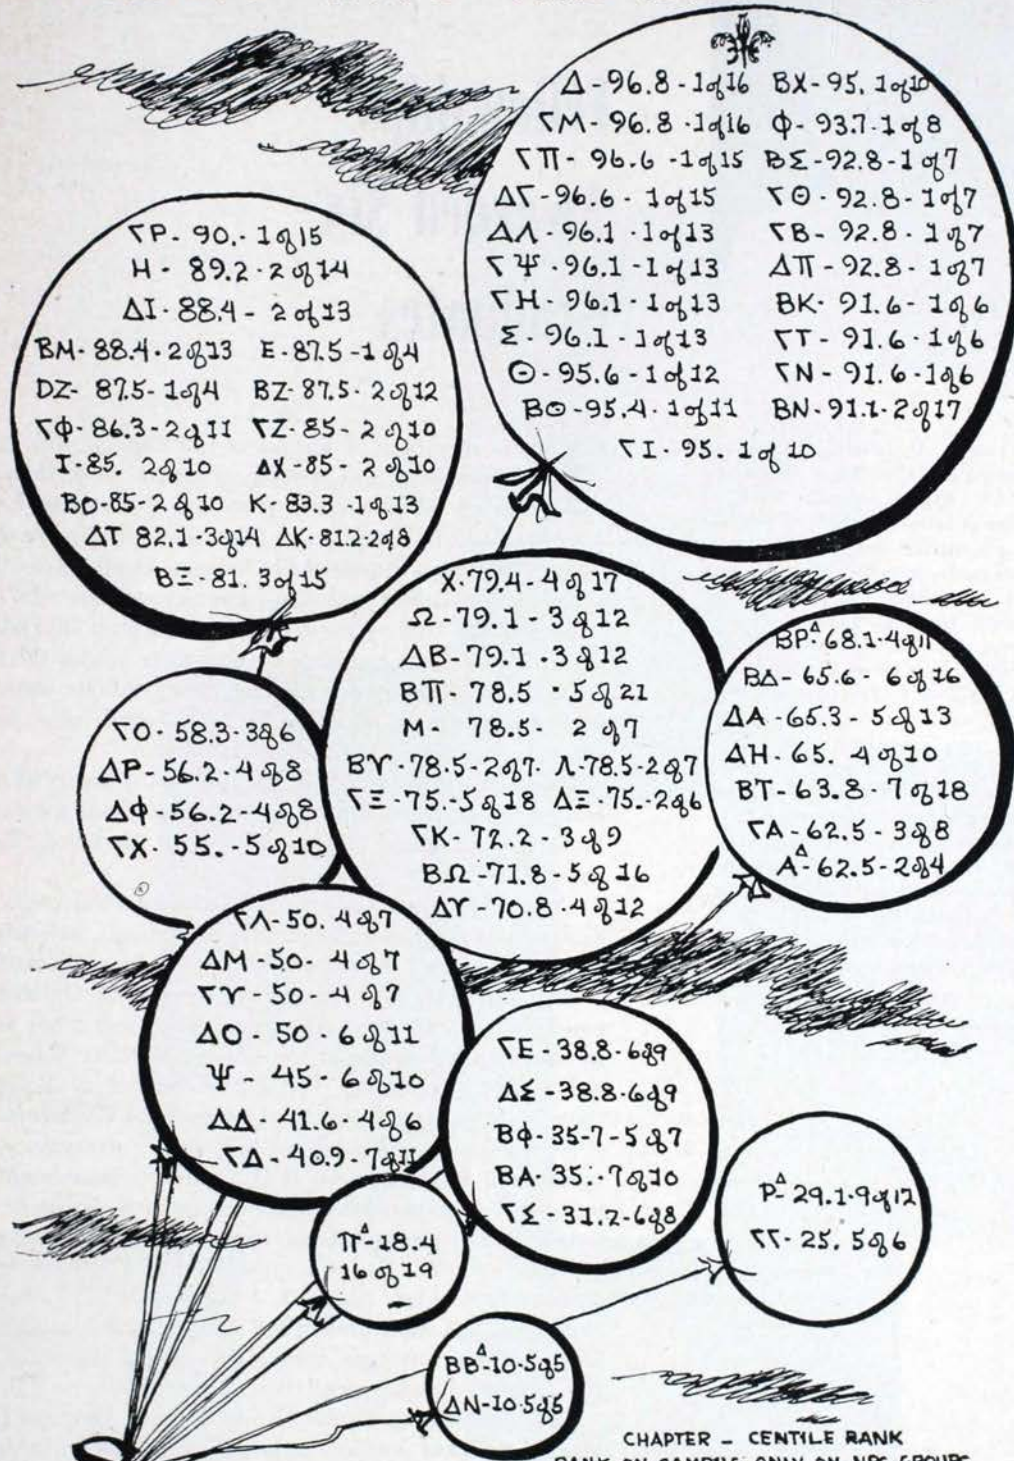 Δ - 96.8 - 1 of 16 BX - 95. 1 of 10
ΓM - 96.8 - 1 of 16 Φ - 93.7 - 1 of 8
ΓΠ - 96.6 - 1 of 15 BΣ - 92.8 - 1 of 7
ΔΓ - 96.6 - 1 of 15 ΓΘ - 92.8 - 1 of 7
ΔΛ - 96.1 - 1 of 13 ΓB - 92.8 - 1 of 7
ΓΨ - 96.1 - 1 of 13 ΔΠ - 92.8 - 1 of 7
ΓH - 96.1 - 1 of 13 BK - 91.6 - 1 of 6
Σ - 96.1 - 1 of 13 ΓT - 91.6 - 1 of 6
Θ - 95.6 - 1 of 12 ΓN - 91.6 - 1 of 6
BΘ - 95.4 - 1 of 11 BN - 91.1 - 2 of 17
ΓI - 95. 1 of 10
ΓP - 90. - 1 of 15
H - 89.2 - 2 of 14
ΔI - 88.4 - 2 of 13
BM - 88.4 - 2 of 13 E - 87.5 - 1 of 4
DZ - 87.5 - 1 of 4 BZ - 87.5 - 2 of 12
ΓΦ - 86.3 - 2 of 11 ΓZ - 85 - 2 of 10
I - 85. 2 of 10 ΔX - 85 - 2 of 10
BO - 85 - 2 of 10 K - 83.3 - 1 of 13
ΔT 82.1 - 3 of 14 ΔK - 81.2 - 2 of 8
BΞ - 81. 3 of 15
X - 79.4 - 4 of 17
Ω - 79.1 - 3 of 12
ΔB - 79.1 - 3 of 12
BΠ - 78.5 - 5 of 21
M - 78.5 - 2 of 7
BΥ - 78.5 - 2 of 7 - Λ - 78.5 - 2 of 7
ΓΞ - 75. - 5 of 18 ΔΞ - 75. - 2 of 6
ΓK - 72.2 - 3 of 9
BΩ - 71.8 - 5 of 16
ΔΥ - 70.8 - 4 of 12
BP Δ - 68.1 - 4 of 11
BΔ - 65.6 - 6 of 16
ΔA - 65.3 - 5 of 13
ΔH - 65. 4 of 10
BT - 63.8 - 7 of 18
ΓA - 62.5 - 3 of 8
A Δ - 62.5 - 2 of 4
ΓO - 58.3 - 3 of 6
ΔP - 56.2 - 4 of 8
ΔΦ - 56.2 - 4 of 8
ΓX - 55. - 5 of 10
ΓΛ - 50. 4 of 7
ΔM - 50 - 4 of 7
ΓΥ - 50 - 4 of 7
ΔO - 50 - 6 of 11
Ψ - 45 - 6 of 10
ΔΔ - 41.6 - 4 of 6
ΓΔ - 40.9 - 7 of 11
ΓE - 38.8 - 6 of 9
ΔΣ - 38.8 - 6 of 9
BΦ - 35-7 - 5 of 7
BA - 35. - 7 of 10
ΓΣ - 31.2 - 6 of 8
P Δ - 29.1 - 9 of 12
ΓΓ - 25. 5 of 6
Π Δ - 18.4
16 of 19
BB Δ - 10 - 5 of 5
ΔN - 10 - 5 of 5
CHAPTER - CENTILE RANK
RANK ON CAMPUS ONLY ON NPC GROUPS